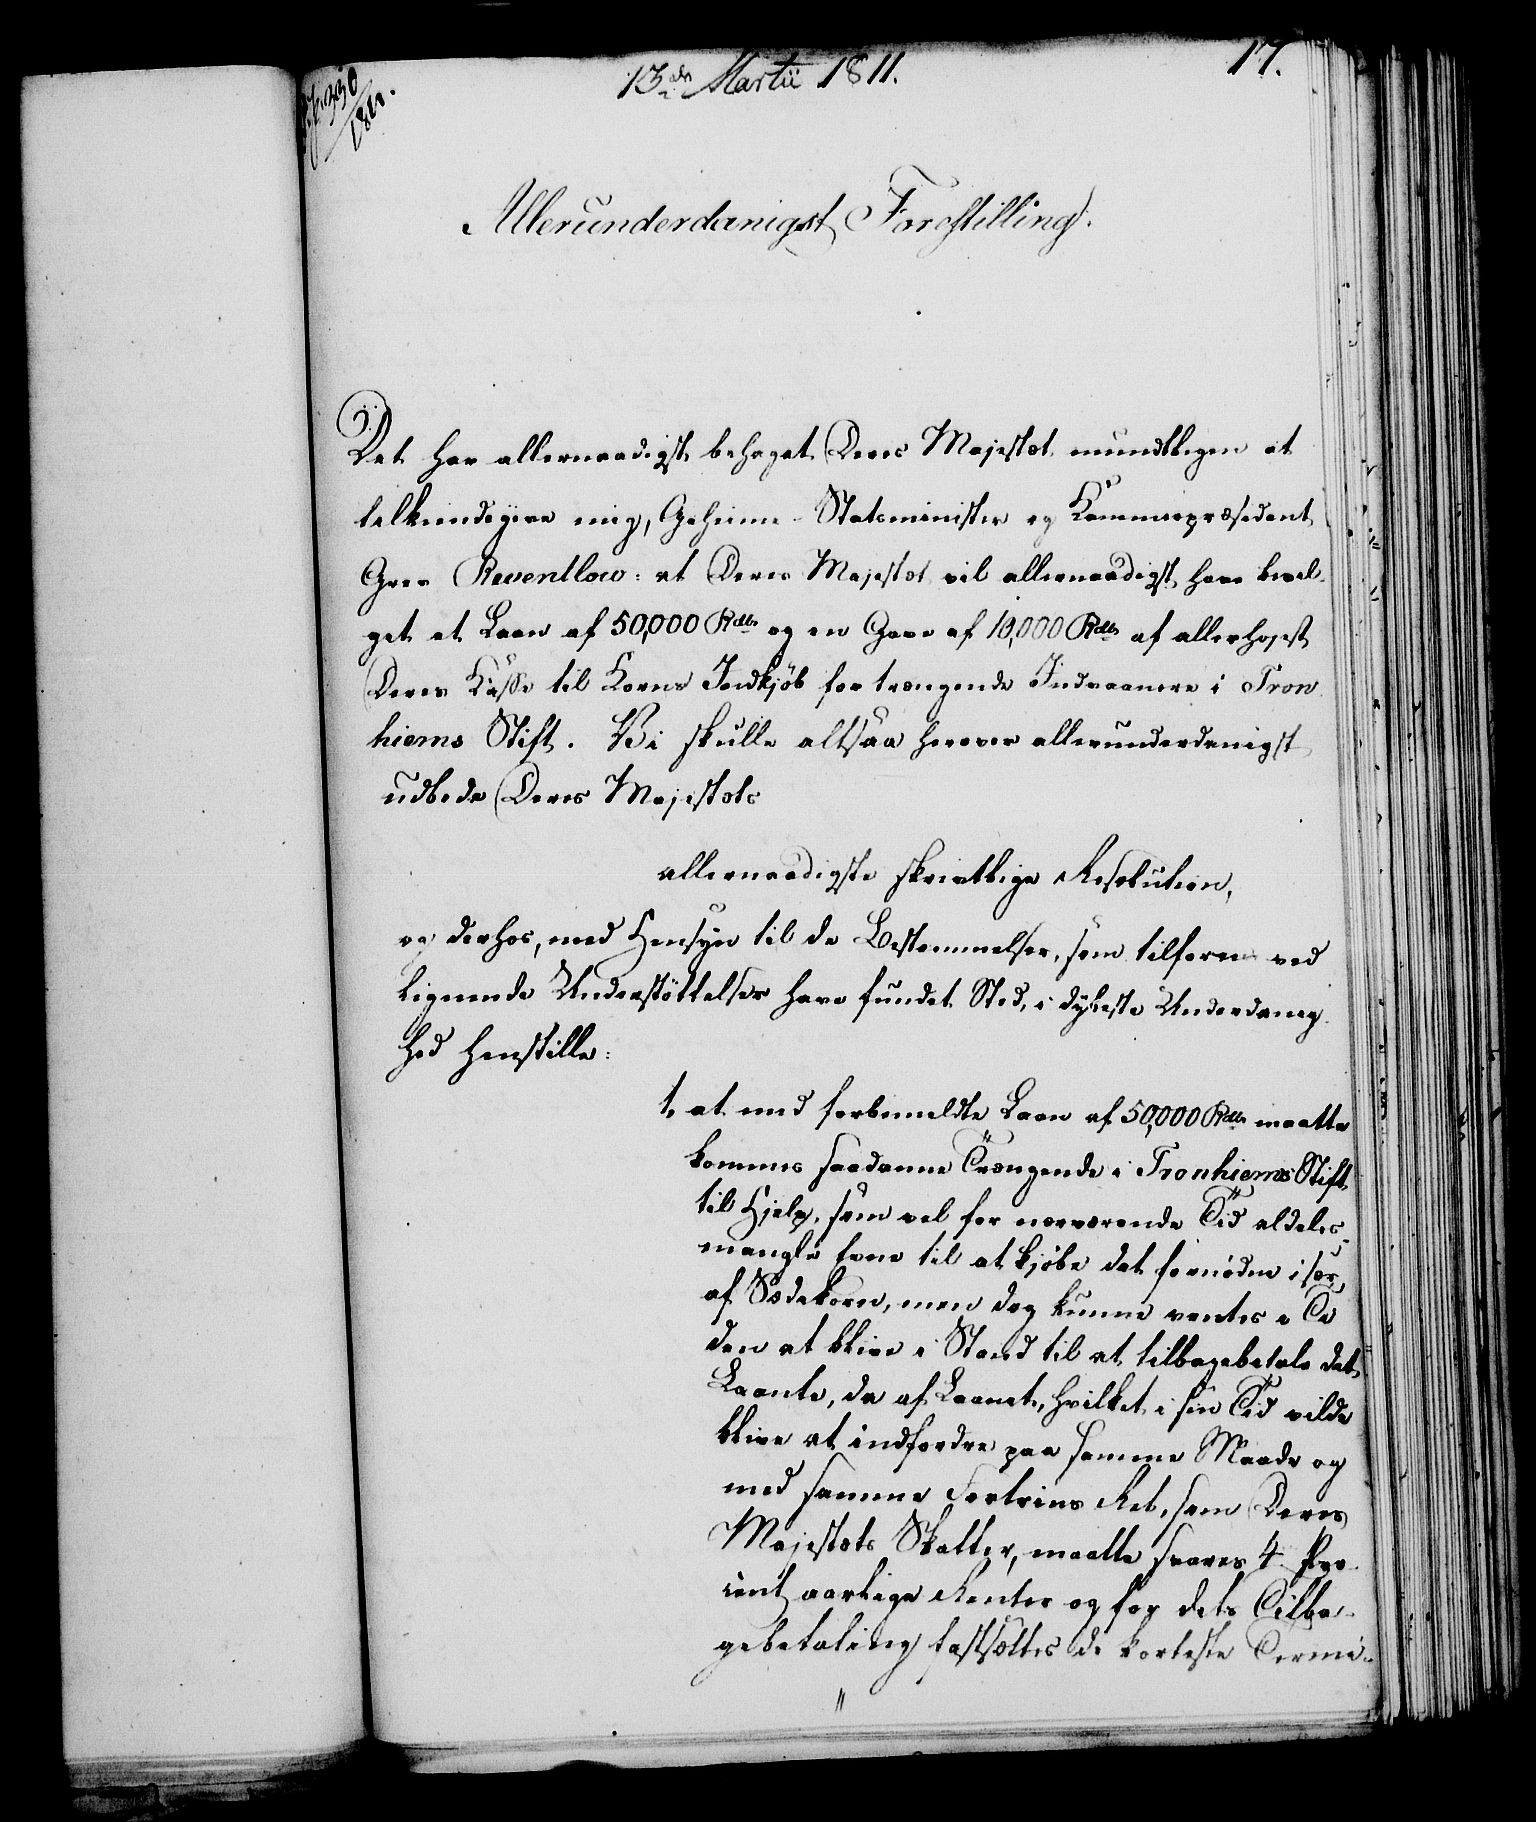 13de Martii 1811.
17.
330
1811.
Allerunderdanigst Forestilling.
Det har allernaadigst behaget Deres Majestæt mundtligen at
tilkiendegive mig, Geheime-Statsminister og Kammerpræsident
Grev Reventlow: at Deres Majestæt vil allernaadigst have bevil-
get et Laan af 50,000 Rdlr og en Gave af 10,000 Rdlr af allerhøjest
Deres Kasse til Korns Indkjøb for trængende Indvaanere i Tron
hiems Stift. Vi skulle altsaa herover allerunderdanigst
udbede Deres Majestæts
allernaadigste skrivtlige Resolution,
og derhos, med Hensyn til de Bestemmelser, som tilforn ved
lignende Understøttelser have fundet Sted, i dybeste Underdanig-
hed henstille:
1, at med forbemeldte Laan af 50,000 Rdlr maatte
kommes saadanne Trængende i Tronhiems Stift
til Hjelp, som vel for nærværende Tid aldeles
mangle Evne til at kjøbe det fornødne især
af Sædekorn, men dog kunne ventes i Ti
den at blive i Stand til at tilbagebetale det
Laante, da af Laanet, hvilket i sin Tid vilde
blive at indfordre paa samme Maade og
med samme Fortrins Ret, som Deres
Majestæts Skatter, maatte svares 4 Pro-
cent aarlige Renter og for dets Tilba-
gebetaling fastsættes de korteste Termi-